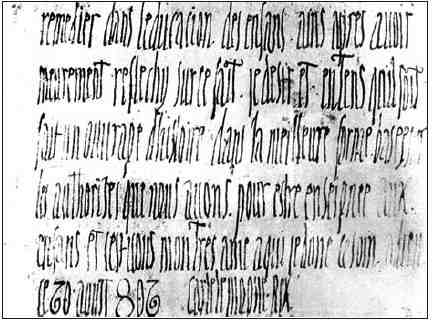 remedier dans leducation des enfans ains apres avoir
meurement reflechy sur ce fait. je desir et entens quil soit
fait un ouvrage dhistoire dans la meilleure forme
les authorites que nous avons. pour estre enseignee aux
enfans et vous mon tres ame a qui je done ce soin adieu
ce aout